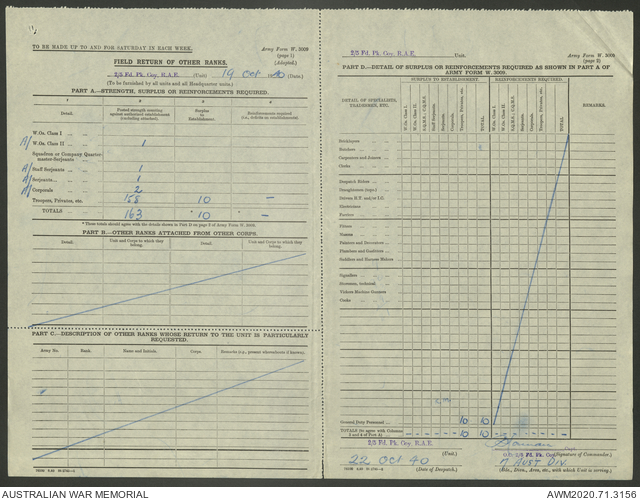 11
TO BE MADE UP TO AND FOR SATURDAY IN EACH WEEK.
Army Form W. 3009
(page 1)
(Adapted.)
FIELD RETURN OF OTHER RANKS.
2/3 Fd. Pk. Coy. R.A.E. (Unit) 19 Oct 40 (Date.)
(To be furnished by all units and all Headquarter units.)
PART A.—STRENGTH, SURPLUS OR REINFORCEMENTS REQUIRED.
1 2 3 4
Detail. Posted strength counting against authorized establishment (excluding attached). Surplus to Establishment. Reinforcements required (i.e., deficits on establishment).
W.Os. Class I
A/ W.Os. Class II 1
Squadron or Company Quarter-
master-Serjeants
A/ Staff Serjeants 1
A/ Serjeants 1
A/ Corporals 2
Troopers, Privates, etc. 158 10 –
TOTALS 163 * 10 * –
* These totals should agree with the details shown in Part D on page 2 of Army Form W. 3009.
PART B.—OTHER RANKS ATTACHED FROM OTHER CORPS.
Detail. Unit and Corps to which they belong. Detail. Unit and Corps to which they belong.
PART C.—DESCRIPTION OF OTHER RANKS WHOSE RETURN TO THE UNIT IS PARTICULARLY
REQUESTED.
Army No. Rank. Name and Initials. Corps. Remarks (e.g., present whereabouts if known).
2/3 Fd. Pk. Coy. R.A.E. Unit.
Army Form W. 3009
(page 2)
PART D.—DETAIL OF SURPLUS OR REINFORCEMENTS REQUIRED AS SHOWN IN PART A OF
ARMY FORM W. 3009.
DETAIL OF SPECIALISTS, TRADESMEN, ETC.
SURPLUS TO ESTABLISHMENT. REINFORCEMENTS REQUIRED.
REMARKS.
W.Os. Class I. W.Os. Class II. S.Q.M.S., C.Q.M.S. Staff Serjeants. Serjeants. Corporals. Troopers, Privates, etc. TOTAL W.Os. Class I. W.Os. Class II. Serjeants. Corporals. Troopers, Privates, etc. TOTAL
Bricklayers
Butchers
Carpenters and Joiners
Clerks
Despatch Riders
Draughtsmen
Drivers
Electricians
Farriers
Fitters
Masons
Painters and Decorators
Plumbers and Gasfitters
Saddlers and Harness Makers
Signallers
Storemen, technical
Vickers Machine Gunners
Clerks
General Duty Personnel 10 10
TOTALS (to agree with Columns
3 and 4 of Part A) 10 10
2/3 Fd. Pk. Coy. R.A.E. (Unit.)
(Signature of Commander.)
O.C. 2/3 Fd.
22 Oct 40 (Date of Despatch.)
7 AUST DIV.
(Bde., Divn., Area, etc., with which Unit is serving.)
AUSTRALIAN WAR MEMORIAL
AWM2020.71.3150